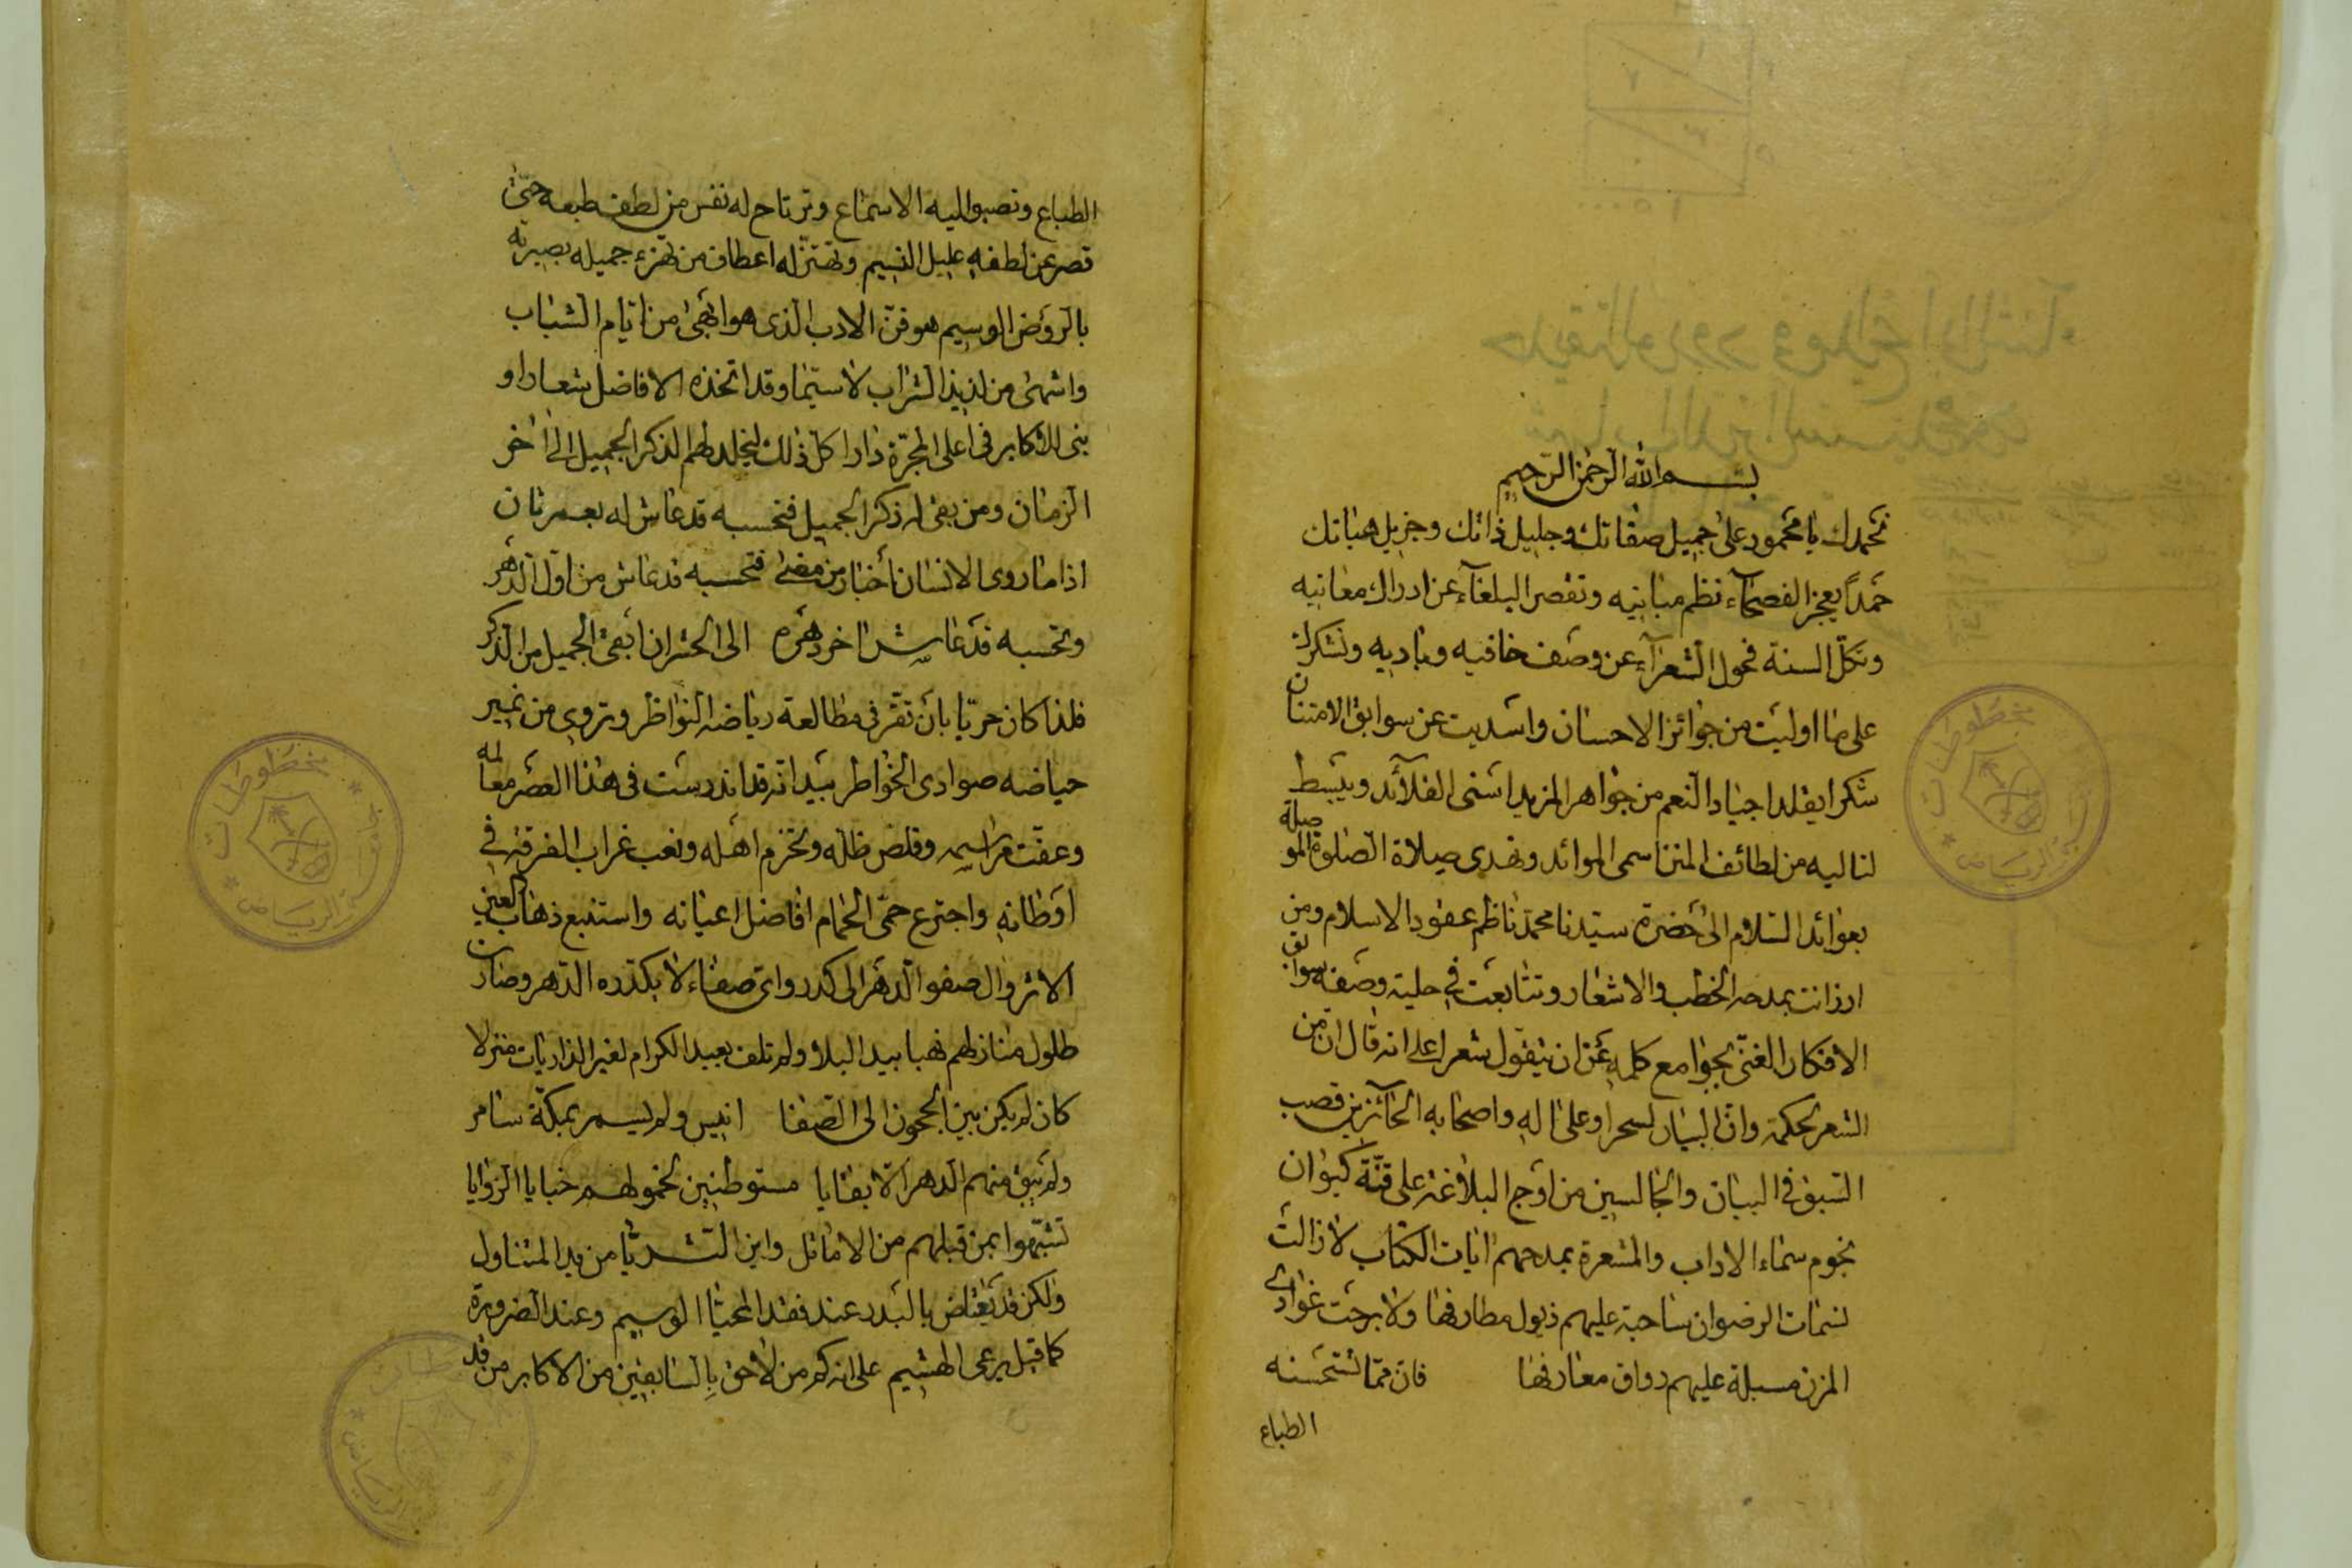 بسم الله الرحمن الرحيم
نحمدك يا محمود على جميل صفاتك وجليل ذاتك وجزيل هباتك
حمداً يعجز الفصحآء نظم مبانيه وتقصر البلغآء عن ادراك معانيه
وتكلّ السنة فحول الشعرآء عن وصف خافيه وباديه ونشكرك
على ما اوليت من جوائز الاحسان واسديت عن سوابق الامتنان
شكرا يقلد اجياد النعم من جواهر المزيد اسنى القلآئد ويبسط
لنا اليه من لطائف المنن اسمى الموائد ونهدى صلاة الصلوة الموصلة
بعوائد السّلام الى حضرة سيّدنا محمّد ناظم عقود الاسلام ومن
ازدانت بمدحه الخطب والاشعار وتتابعت في حلية وصفه سوابق
الافكار الغنىّ بجوامع كلمه عن ان يتقول شعرا على انه قال ان من
الشعر لحكمة وانّ البيان لسحرا وعلى اله واصحابه الحآئزين قصب
السّبق فى البيان والجالسين من اوج البلاغة على قنّة كيوان
نجوم سماء الاداب والمشعرة بمدحهم ايات الكتاب لا زالت
نسمات الرضوان ساحبة عليهم ذيول مطارفها ولا برحت غوادى
المزن مسبلة عليهم رواق معارفها فان ممّا تستحسنه
الطباع
الطباع وتصبو اليه الاسماع وترتاح له نفس من لطف طبعه حتّى
قصر عن لطفه عليل النسيم وتهتزّ له اعطاف من تهزء جميله بصيرته
بالرّوض الوسيم هو فنّ الادب الّذى هو ابهى من ايّام الشّباب
واشهى من لذيذ الشّراب لا سيّما وقد اتخذه الافاضل شعارا و
بنى للاكابر فى اعلى المجرّة دارا كلّ ذلك ليخلد لهم الذكر الجميل الى اخر
الزمان ومن بقى له ذكر الجميل فتحسبه قد عاش له بعمر ثان
اذا ما روى الانسان اخبار من مضى فتحسبه قد عاش من اول الدّهر
وتحسبه قد عاش اخر دهره الى الحشر ان ابقى الجميل من الذكر
فلذا كان حريّا بان تقرّ فى مطالعة رياضه النواظر وتروى من نمير
حياضه صوادى الخواطر بيد انّه قد اندرست فى هذا العصر معالمه
وعفت مراسمه وقلص ظلّه وتخرم اهله ونعب غراب الفرقة في
اوطانه واجترع حمّى الحمام افاضل اعيانه واستتبع ذهاب العين
الاثر وال صفو الدّهر الى كدر واىّ صفاء لا يكدّره الدّهر وصارت
طلول منازلهم نهبا بيد البلا ولم تلف بعيد الكرام لغير الذاريات منزلا
كان لم يكن بين الحجون الى الصّفا انيس ولم يسمر بمكّة سامر
ولم يبق منهم الدهر الّا بقايا مستوطنين لخمولهم خبايا الزوايا
تشبّهوا بمن قبلهم من الاماثل واين الثريّا من يد المتناول
ولكن قد يعتاض بالبدر عند فقد المحيّا الوسيم وعند الضرورة
كما قيل يرعى الهشيم على انه كم من لاحق بالسّابقين من الاكابر من قد
مخطوطات
الرياض
مخطوطات
الرياض